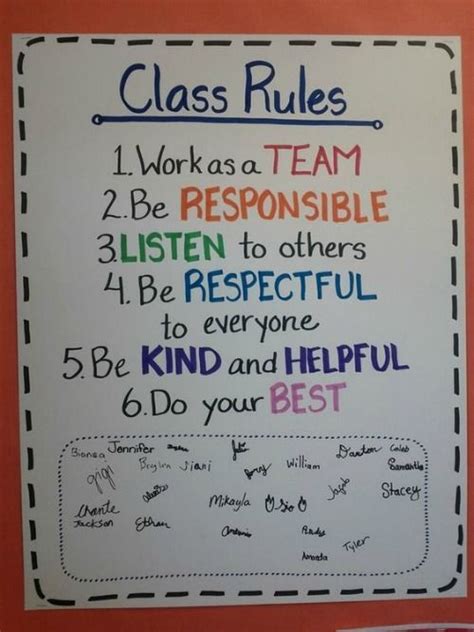 Class Rules
1. Work as a TEAM
2. Be RESPONSIBLE
3. LISTEN to others
4. Be RESPECTFUL
to everyone
5. Be KIND and HELPFUL
6. Do your BEST
Bianca Jennifer Julie Daxton Caleb
gigi Brylin Jiani William Samantha
Mikayla Stacey
Chante
Jackson Ethan Antonio
Amanda Tyler